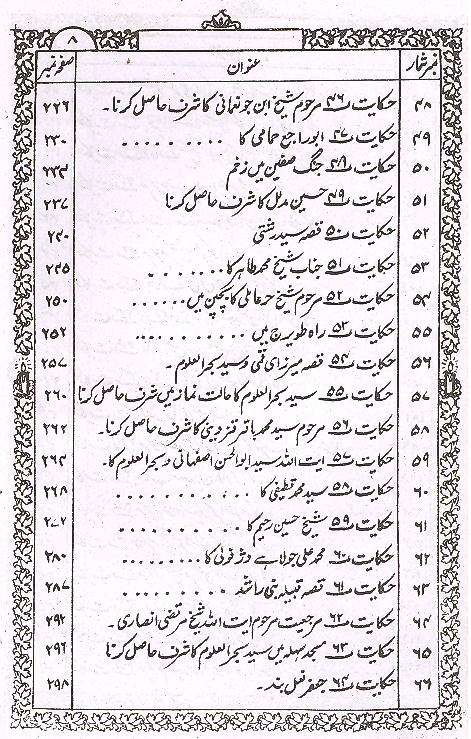 ۸
نمبر شمار عنوان صفحہ نمبر
۴۸ حکایت ۴۶ مرحوم شیخ ابن جو نعمانی کا شرف حاصل کرنا۔ ۲۲۶
۴۹ حکایت ۴۷ ابو راجع حمامی کا .......... ۲۳۰
۵۰ حکایت ۴۸ جنگ صفین میں زخم ۲۳۴
۵۱ حکایت ۴۹ حسین مدلل کا شرف حاصل کرنا ۲۳۷
۵۲ حکایت ۵۰ قصہ سید رشتی ۲۴۰
۵۳ حکایت ۵۱ جناب شیخ محمد طاہر کا ....... ۲۴۵
۵۴ حکایت ۵۲ مرحوم شیخ حر عاملی کا بچپن میں ...... ۲۵۰
۵۵ حکایت ۵۳ راہ طویرج میں .......... ۲۵۲
۵۶ حکایت ۵۴ قصہ میرزای قمی و سید بحر العلوم۔ ۲۵۷
۵۷ حکایت ۵۵ سید بحر العلوم کا حالت نماز میں شرف حاصل کرنا ۲۶۰
۵۸ حکایت ۵۶ مرحوم سید محمد باقر قزوینی کا شرف حاصل کرنا۔ ۲۶۲
۵۹ حکایت ۵۷ ایت اللہ سید ابوالحسن اصفہانی و بحر العلوم کا۔ ۲۶۴
۶۰ حکایت ۵۸ سید محمد قطیفی کا .......... ۲۶۸
۶۱ حکایت ۵۹ شیخ حسین رحیم کا ......... ۲۷۲
۶۲ حکایت ۶۰ محمد علی جولاہے دزفولی کا ......... ۲۸۰
۶۳ حکایت ۶۱ قصہ قبیلہ بنی راشد ........ ۲۸۷
۶۴ حکایت ۶۲ مرجعیت مرحوم ایت اللہ شیخ مرتضی انصاری۔ ۲۹۲
۶۵ حکایت ۶۳ مسجد سہلہ میں سید بحر العلوم کا شرف حاصل کرنا ۲۹۶
۶۶ حکایت ۶۴ جعفر نعل بند۔ ۲۹۸